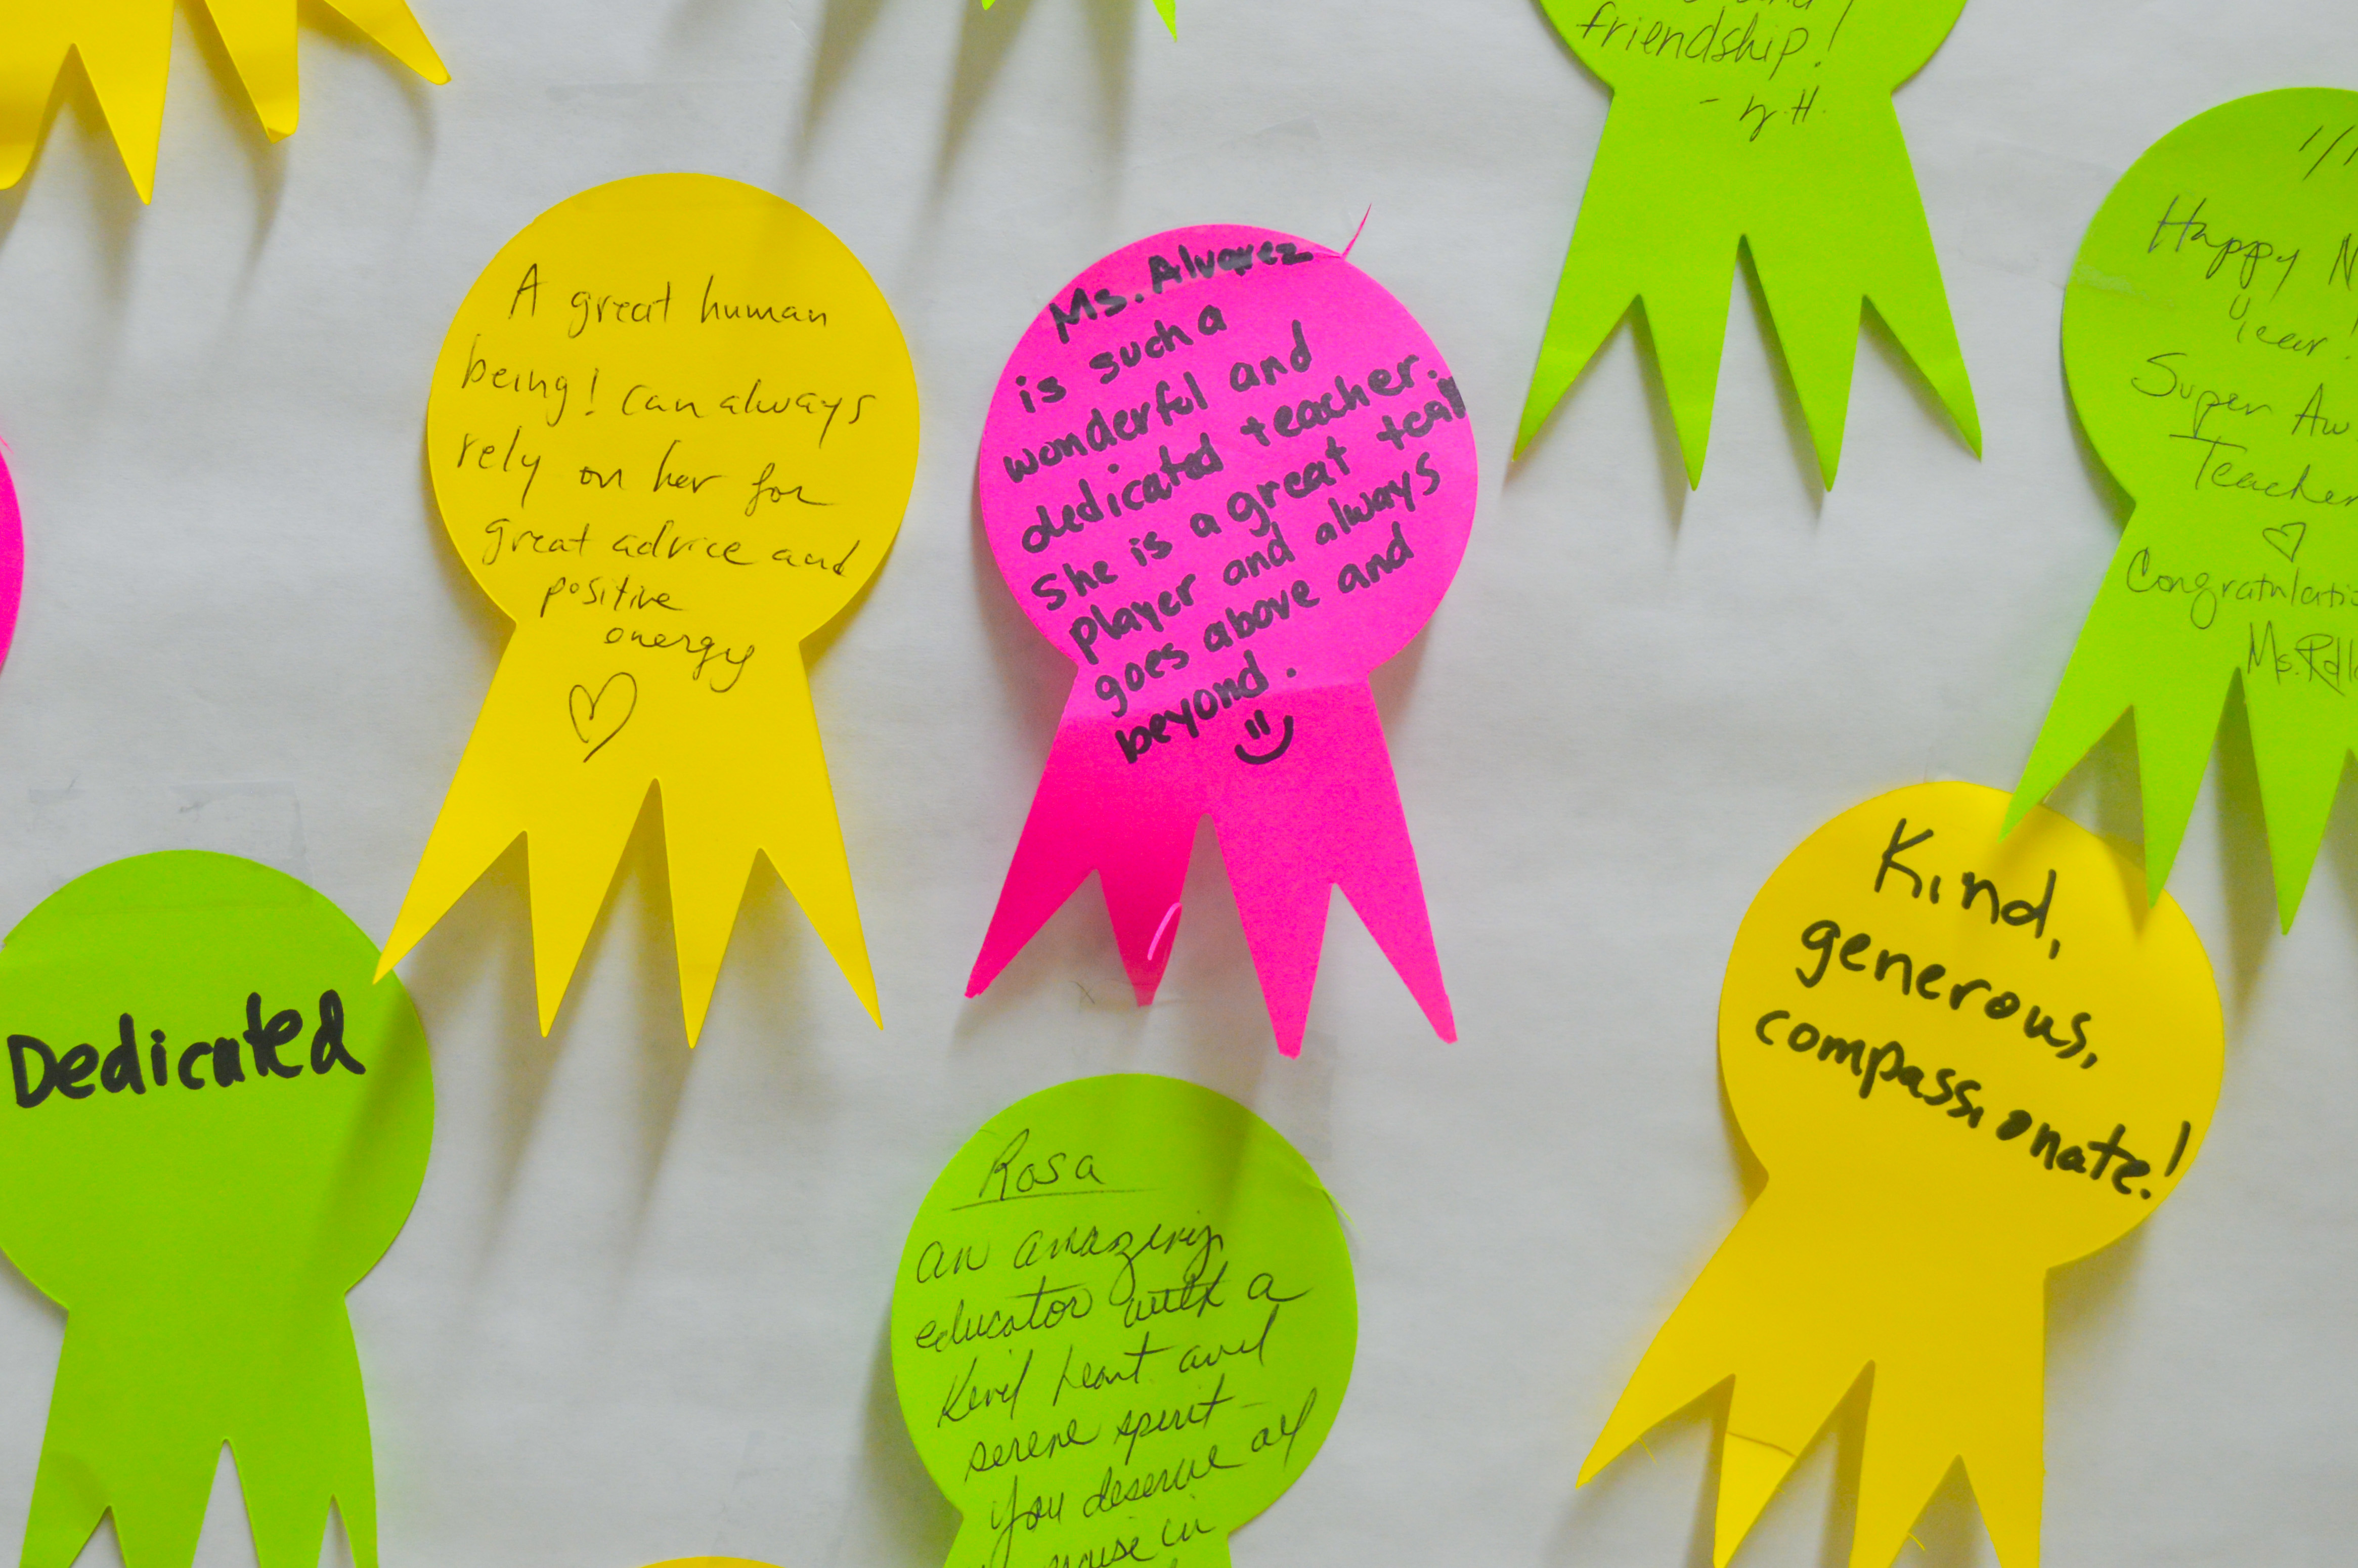 friendship!
- y.H.
A great human
being! Can always
rely on her for
great advice and
positive
energy
Ms. Alvarez
is such a
wonderful and
dedicated teacher.
She is a great team
player and always
goes above and
beyond.
Happy
Year!
Super
Teacher
Congratulatio
Ms.
Dedicated
Kind,
generous,
compassionate!
Rosa
an amazing
educator with a
kind heart and
serene spirit -
you deserve all
in